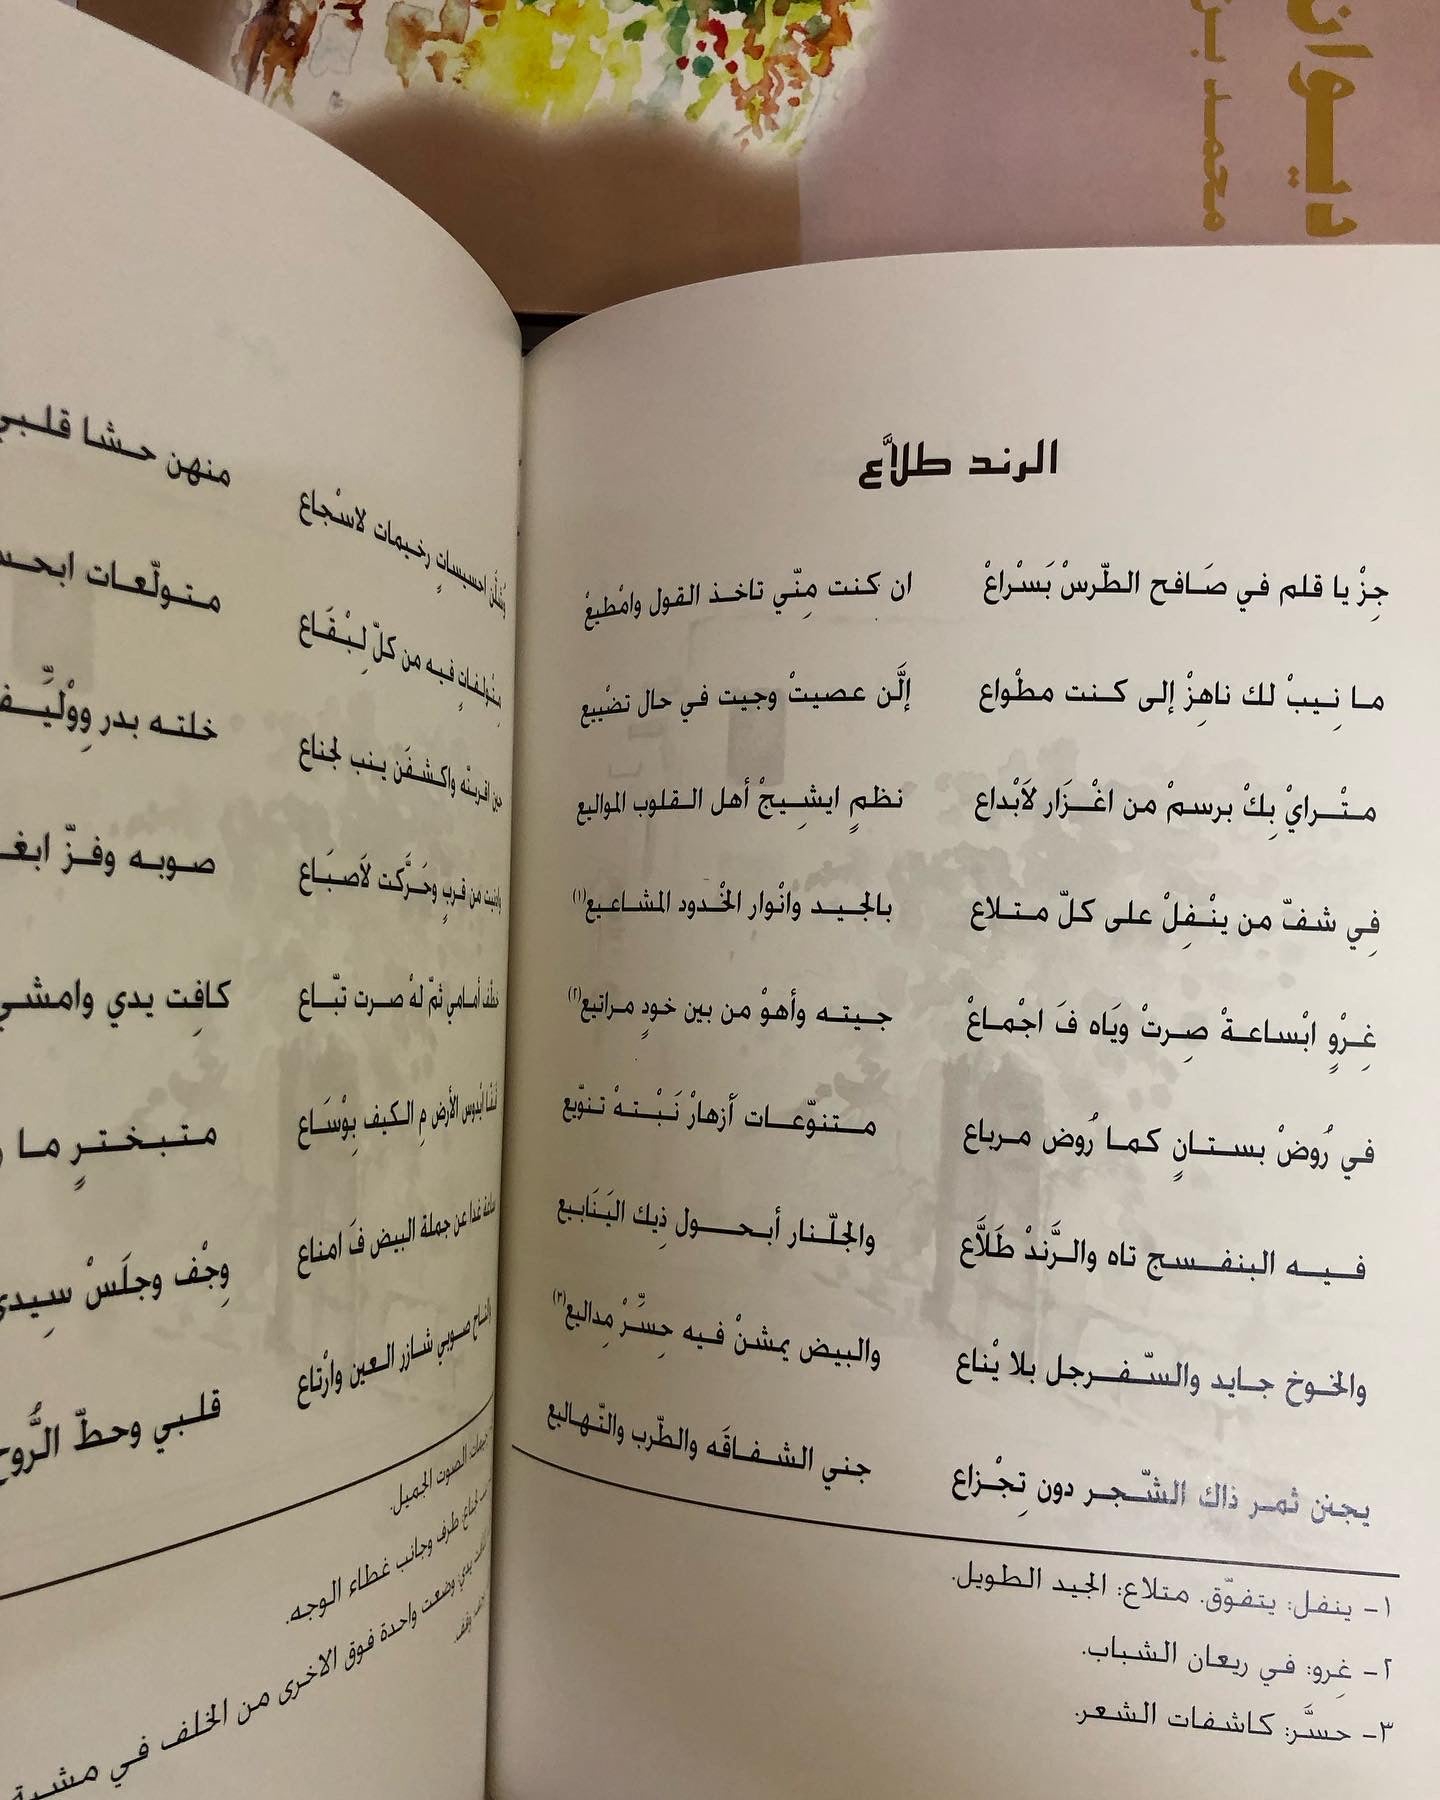 ديوان
محمد بن
الرند طلاَّع
جِزْ يا قلم في صَافح الطّرسْ بَسْراعْ ان كنت مِنّي تاخذ القول وامْطيعْ
ما نِيبْ لك ناهِزْ إلى كنت مطْواع إلَّن عصيتْ وجيت في حال تضْييع
متْرايْ بِكْ برسمْ من اغْزَار لَابْداع نظمٍ ايشِيجْ أهل القلوب المواليع
فِي شفّ من ينْفِلْ على كلّ متلاع بالجيد وانْوار الخْدود المشاعيع(١)
غِرْوٍ ابْساعةْ صِرتْ ويَاه فَ اجْماعْ جيته وأهوْ من بين خودٍ مراتيع(٢)
في رُوضْ بستانٍ كما رُوض مرباع متنوّعات أزهارْ نَبْتهْ تنويع
فيه البنفسج تاه والرَّندْ طَلاَّع والجلّنار أبحول ذِيك اليَنَابيع
والخوخ جايد والسّفرجل بلا يْناع والبيض يمشنْ فيه حِسَّرْ مِداليع(٣)
يجنن ثمر ذاك الشّجر دون تِجْزاع جني الشفاقَه والطّرب والتّهاليع
١- ينفل: يتفوّق. متلاع: الجيد الطويل.
٢- غِرو: في ريعان الشباب.
٣- حسَّر: كاشفات الشعر.
احسيساتٍ رخيمات لاسْجاع منهن حشا قلبي
فيه من كلّ لِبْقَاع متولّعات
واكشفَن ينب لجناع خلته بدر
من قربٍ وحَرَّكت لَاصبَاع صوبه وفزّ
أمامي ثمّ لهْ صرت تبّاع كافِت يدي وامشي
الأرض مِ الكيف بِوْسَاع متبخترٍ ما
غدا عن جملة البيض فَ امناع وِجْف وجلَسْ سِيدي
صوبي شازر العين وارْتاع قلبي وحطّ الرُّوح
الصوت الجميل.
طرف وجانب غطاء الوجه.
يدي: وضعت واحدة فوق الاخرى من الخلف في مشية